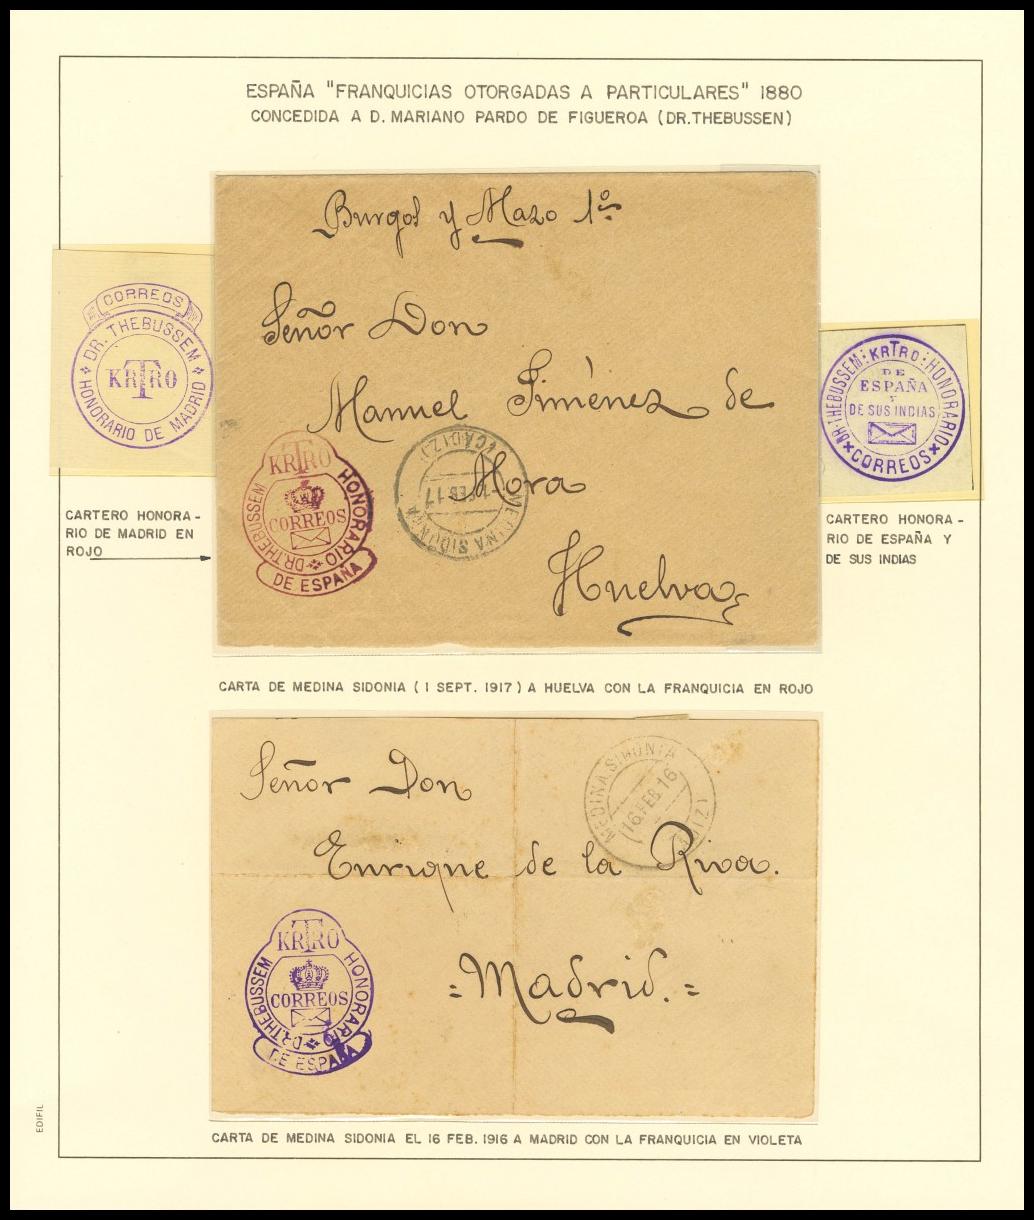 ESPAÑA "FRANQUICIAS OTORGADAS A PARTICULARES" 1880
CONCEDIDA A D. MARIANO PARDO DE FIGUEROA (DR. THEBUSSEN)
Burgos y Mazo 1º
Señor Don
Manuel Jiménez de
Mora
Huelva
CORREOS
DR. THEBUSSEM
KRTRO
HONORARIO DE MADRID
CARTERO HONORA-
RIO DE MADRID EN
ROJO
KRTRO
DR. THEBUSSEM HONORARIO
CORREOS
DE ESPAÑA
MEDINA SIDONIA
FEB. 17
(CADIZ)
DR. THEBUSSEM · KRTRO · HONORARIO
DE
ESPAÑA
Y
DE SUS INDIAS
CORREOS
CARTERO HONORA-
RIO DE ESPAÑA Y
DE SUS INDIAS
CARTA DE MEDINA SIDONIA (1 SEPT. 1917) A HUELVA CON LA FRANQUICIA EN ROJO
Señor Don
Enrique de la Riva.
=Madrid.=
MEDINA SIDONIA
16 FEB. 16
KRTRO
DR. THEBUSSEM HONORARIO
CORREOS
DE ESPAÑA
EDIFIL
CARTA DE MEDINA SIDONIA EL 16 FEB. 1916 A MADRID CON LA FRANQUICIA EN VIOLETA